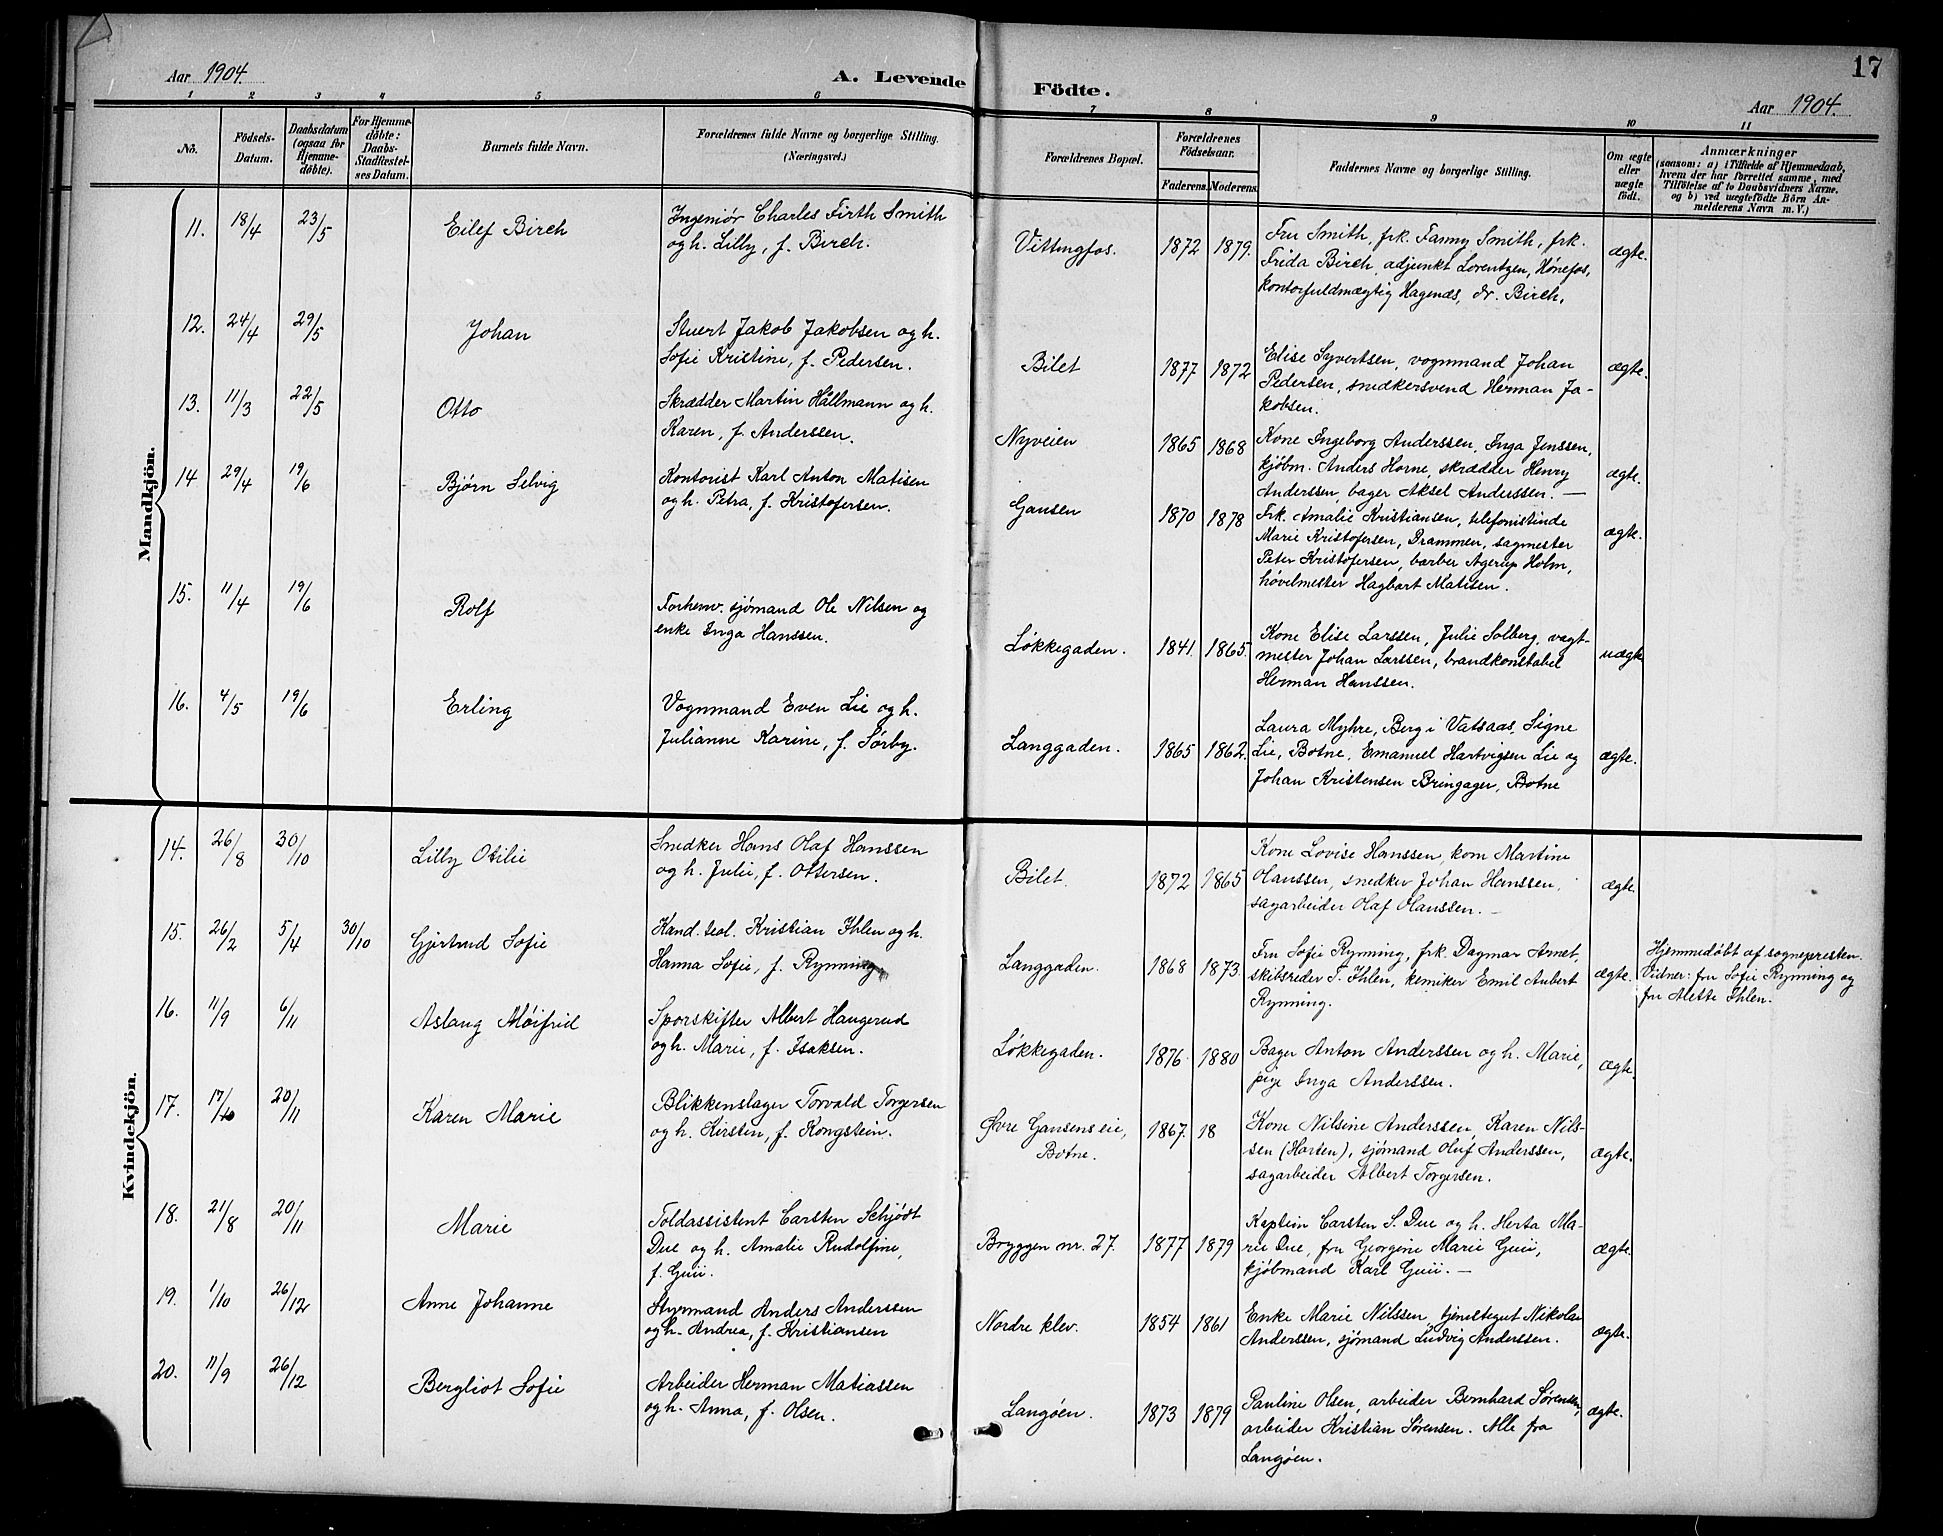 17
Aar 1904.
A. Levende Födte.
Aar 1904.
1 2 3 4 5 6 7 8 9 10 11
No.
Födsels-
Datum.
Daabsdatum
(ogsaa for
Hjemme-
döbte).
For Hjemme-
döbte:
Daabs-
Stadfæstel-
ses Datum.
Barnets fulde Navn.
Forældrenes fulde Navne og borgerlige Stilling.
(Næringsvei.)
Forældrenes Bopæl.
Forældrenes
Födselsaar.
Faderens. Moderens.
Faddernes Navne og borgerlige Stilling.
Om ægte
eller
uægte
födt.
Anmærkninger
(saasom: a) i Tilfælde af Hjemmedaab,
hvem der har forrettet samme, med
Tilföielse af to Daabsvidners Navne.
og b) ved uægtefödte Börn An-
melderens Navn m. V.)
Mandkjön.
11. 18/4 23/5 Eilef Birch
Ingeniør Charles Firth Smith
og h. Lilly, f. Birch.
Vittingfos. 1872 1879.
Fru Smith, frk. Fanny Smith, frk.
Frida Birch, adjunkt Lorentzen, Hønefos,
kontorfuldmægtig Hagenæs, dr. Birch.
ægte.
12. 24/4 29/5 Johan
Stuert Jakob Jakobsen og h.
Sofie Kristine, f. Pedersen.
Bilet 1877 1872
Elise Syvertsen, vognmand Johan
Pedersen, snedkersvend Herman Ja-
kobsen.
ægte.
13. 11/3 22/5 Otto
Skrædder Martin Hållmann og h.
Karen, f. Anderssen.
Nyveien 1865 1868
Kone Ingeborg Anderssen, Inga Jenssen,
kjøbm. Anders Horne, skrædder Henry
Anderssen, bager Aksel Anderssen. —
ægte.
14 29/4 19/6 Bjørn Selvig
Kontorist Karl Anton Matisen
og h. Petra, f. Kristofersen.
Gausen 1870 1878
Frk. Amalie Kristiansen, telefonistinde
Marie Kristofersen, Drammen, sagmester
Peter Kristofersen, barber Agerup Holm,
høvelmester Hagbart Matisen.
ægte.
15. 11/4 19/6 Rolf
Forhenv. sjømand Ole Nilsen og
enke Inga Hanssen.
Løkkegaden. 1841. 1865.
Kone Elise Larssen, Julie Solberg, vagt-
mester Johan Larssen, brandkonstabel
Herman Hanssen.
uægte
16. 4/5 19/6 Erling
Vognmand Even Lie og h.
Julianne Karine, f. Sørby.
Langgaden. 1865 1862.
Laura Myhre, Berg i Vatsaas, Signe
Lie, Botne, Emanuel Hartvigsen Lie og
Johan Kristensen Bringager, Botne
ægte.
Kvindekjön.
14. 26/8 30/10 Lilly Otilie
Snedker Hans Olaf Hanssen
og h. Julie, f. Ottersen.
Bilet. 1872 1865
Kone Lovise Hanssen, kone Martine
Olanssen, snedker Johan Hanssen,
sagarbeider Olaf Olanssen. —
ægte.
15. 26/2 5/4 30/10 Gjertrud Sofie
Kand. teol. Kristian Ihlen og h.
Hanna Sofie, f. Rynning
Langgaden. 1868 1873.
Fru Sofie Rynning, frk. Dagmar Arnet,
skibsreder T. Ihlen, kemiker Emil Aubert
Rynning.
ægte.
Hjemmedøbt af sognepresten.
Vidner: fru Sofie Rynning og
fru Mette Ihlen.
16. 11/9 6/11 Aslaug Møifrid
Sporskifter Albert Haugerud
og h. Marie, f. Isaksen.
Løkkegaden. 1876. 1880
Bager Anton Anderssen og h. Marie,
pige Inga Anderssen.
ægte.
17. 17/10 20/11 Karen Marie
Blikkenslager Torvald Torgersen
og h. Kirsten, f. Kongstein.
Øvre Gausens eie,
Botne.
1867. 18
Kone Nilsine Anderssen, Karen Nils-
sen (Horten), sjømand Oluf Anderssen,
sagarbeider Albert Torgersen.
ægte.
18. 21/8 20/11 Marie
Toldassistent Carsten Schjødt
Due og h. Amalie Rudolfine,
f. Guii.
Bryggen nr. 27. 1877 1879
Kaptein Carsten S. Due og h. Herta Ma-
rie Due, fru Georgine Marie Guii,
kjøbmand Karl Guii. —
ægte.
19. 1/10 26/12 Anne Johanne
Styrmand Anders Anderssen
og h. Andrea, f. Kristiansen
Nordre klev. 1854 1861
Enke Marie Nilssen, tjenstegut Nikolai
Anderssen, sjømand Ludvig Anderssen.
ægte.
20. 11/9 26/12 Bergliot Sofie
Arbeider Herman Matiassen
og h. Anna, f. Olsen.
Langøen. 1873 1879
Pauline Olsen, arbeider Bernhard Sørensen,
arbeider Kristian Sørensen. Alle fra
Langøen.
ægte.